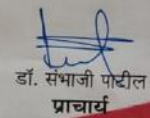 डॉ. संभाजी पाटील
प्राचार्य